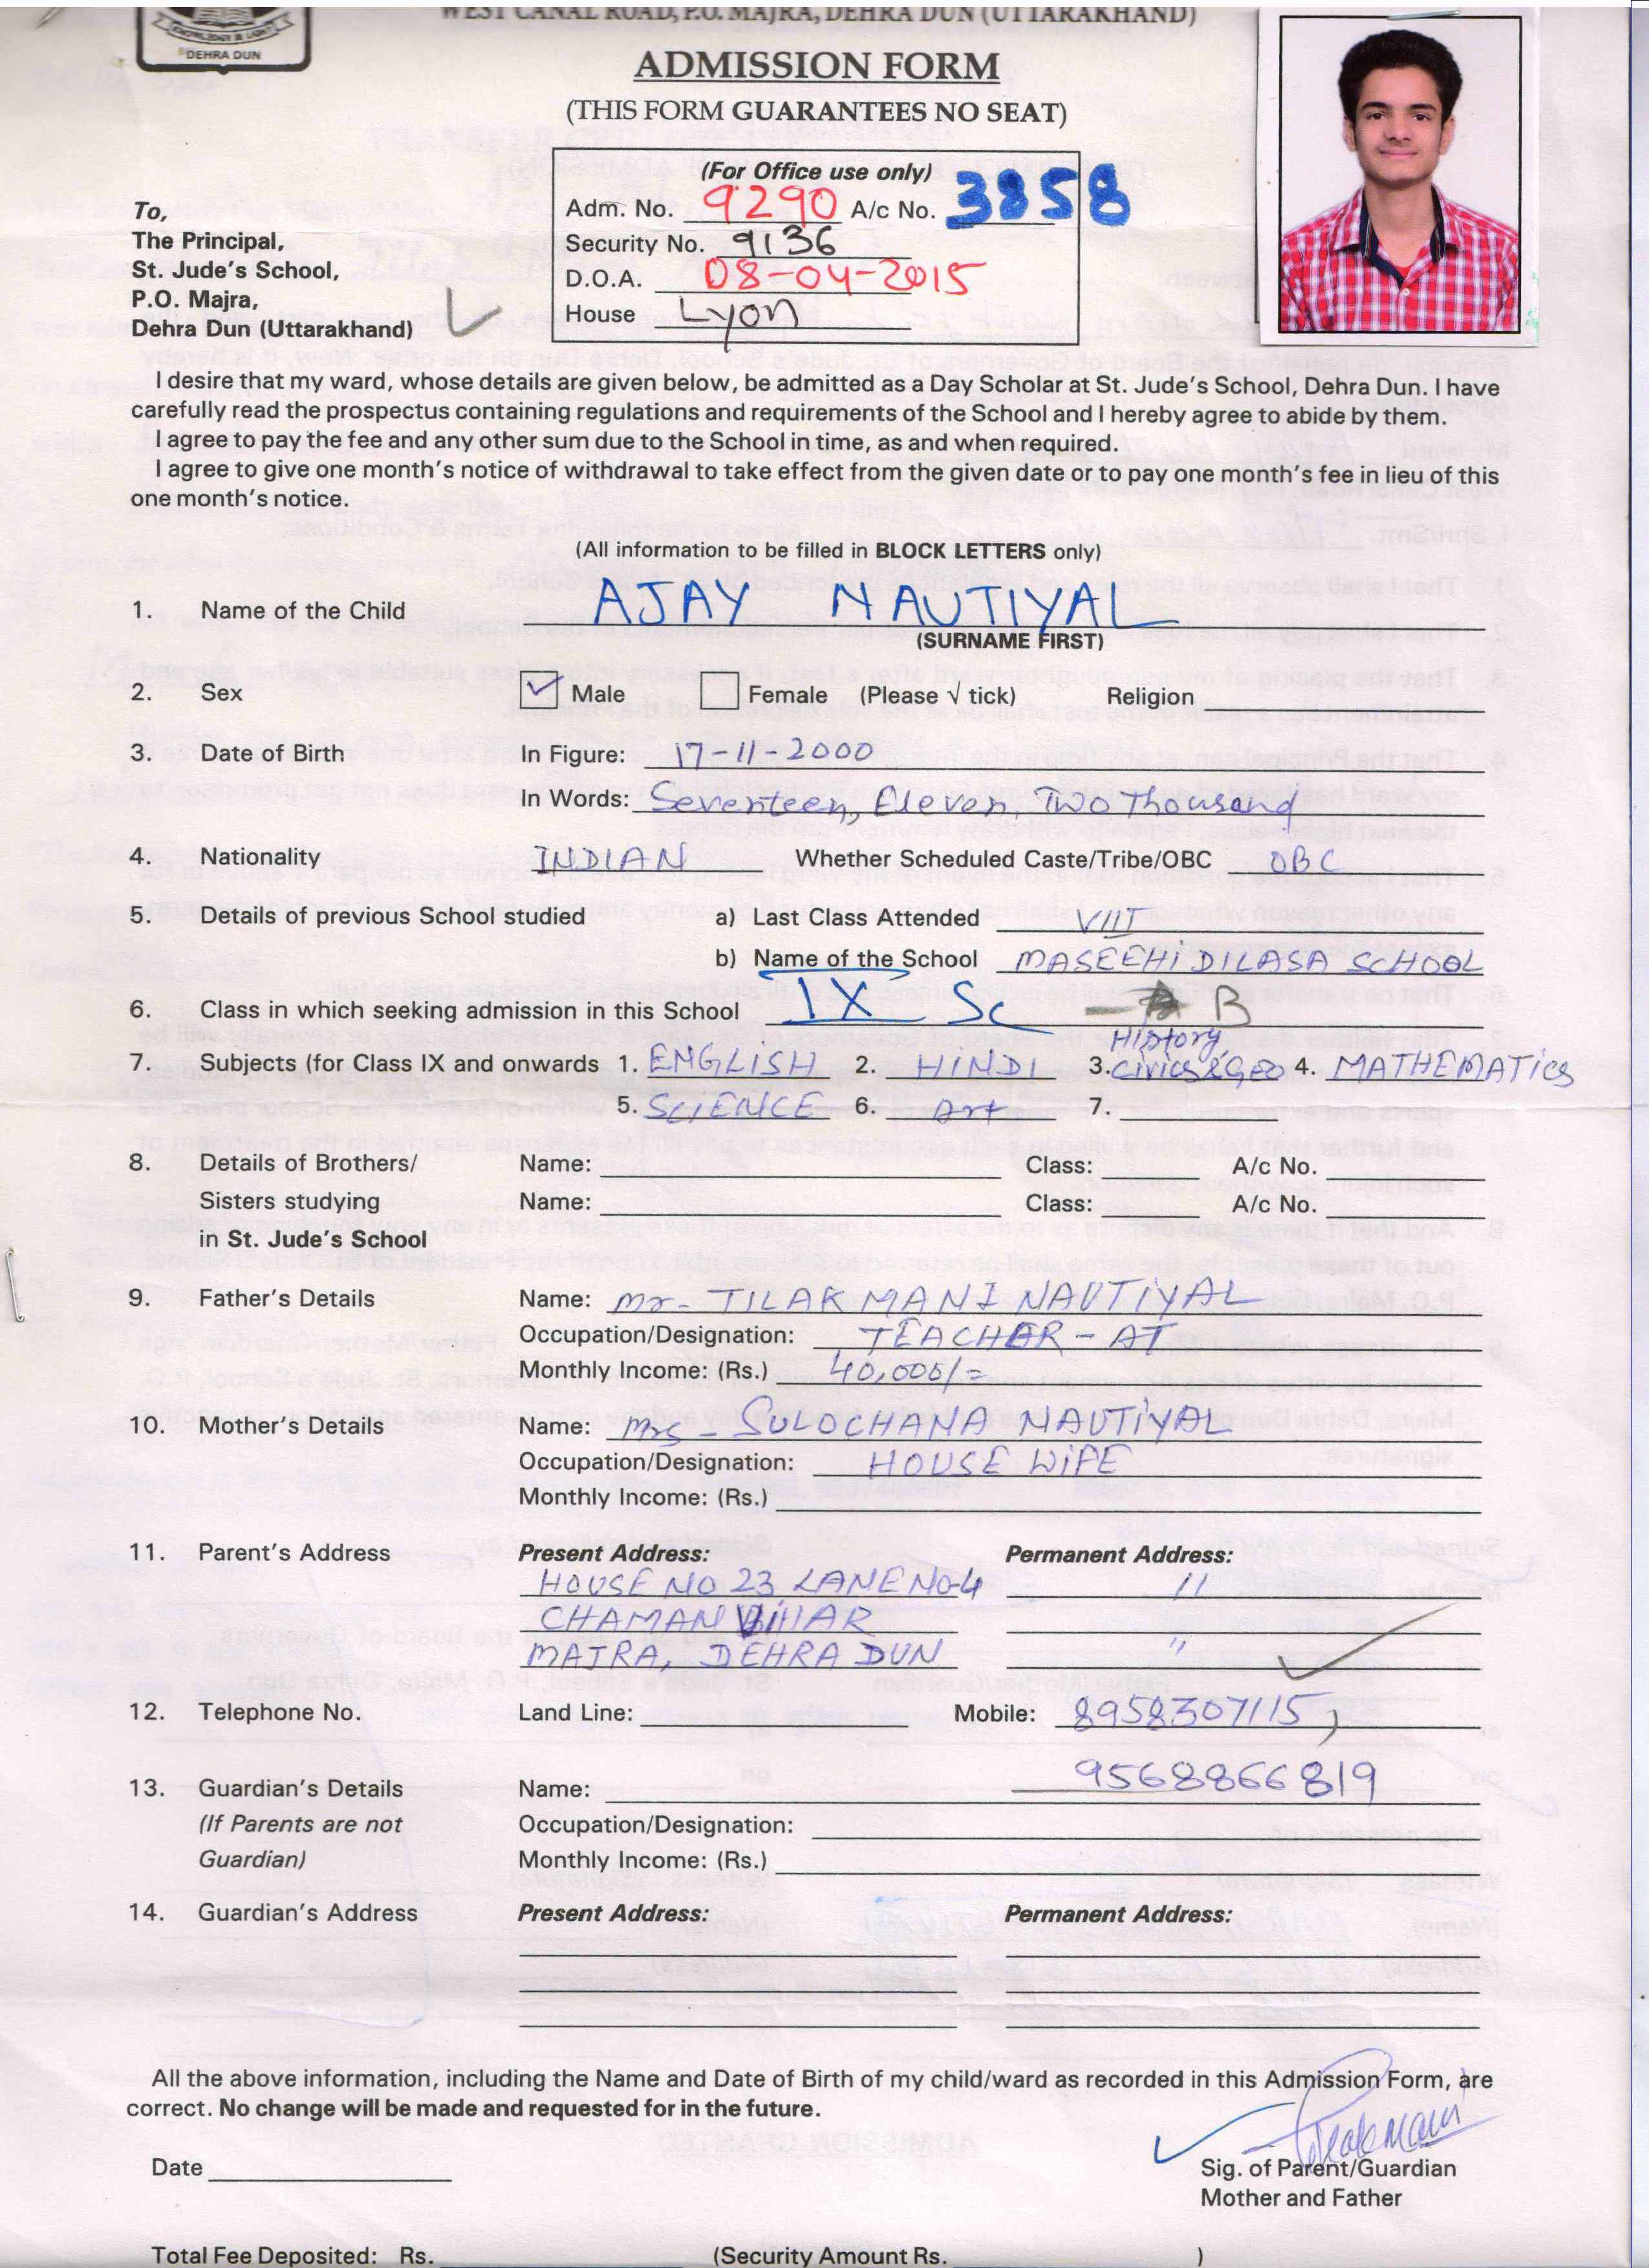 WEST CANAL ROAD, P.O. MAJRA, DEHRA DUN (UTTARAKHAND)
KNOWLEDGE & LIGHT
DEHRA DUN
ADMISSION FORM
(THIS FORM GUARANTEES NO SEAT)
(For Office use only)
Adm. No. 9290 A/c No. 3858
Security No. 9136
D.O.A. 08-04-2015
House Lyon
To,
The Principal,
St. Jude's School,
P.O. Majra,
Dehra Dun (Uttarakhand)
I desire that my ward, whose details are given below, be admitted as a Day Scholar at St. Jude's School, Dehra Dun. I have
carefully read the prospectus containing regulations and requirements of the School and I hereby agree to abide by them.
I agree to pay the fee and any other sum due to the School in time, as and when required.
I agree to give one month's notice of withdrawal to take effect from the given date or to pay one month's fee in lieu of this
one month's notice.
(All information to be filled in BLOCK LETTERS only)
1. Name of the Child AJAY NAUTIYAL
(SURNAME FIRST)
2. Sex Male Female (Please √ tick) Religion
3. Date of Birth In Figure: 17-11-2000
In Words: Seventeen, Eleven, Two Thousand
4. Nationality INDIAN Whether Scheduled Caste/Tribe/OBC OBC
5. Details of previous School studied a) Last Class Attended VIII
b) Name of the School MASEEHI DILASA SCHOOL
6. Class in which seeking admission in this School IX Sc B
History
7. Subjects (for Class IX and onwards 1. ENGLISH 2. HINDI 3. civics & Geo 4. MATHEMATICS
5. SCIENCE 6. Art 7.
8. Details of Brothers/ Name: Class: A/c No.
Sisters studying Name: Class: A/c No.
in St. Jude's School
9. Father's Details Name: Mr- TILAK MANI NAUTIYAL
Occupation/Designation: TEACHER - AT
Monthly Income: (Rs.) 40,000/=
10. Mother's Details Name: Mrs - SULOCHANA NAUTIYAL
Occupation/Designation: HOUSE WIFE
Monthly Income: (Rs.)
11. Parent's Address Present Address: Permanent Address:
HOUSE NO 23 LANE NO-4 "
CHAMAN VIHAR
MAJRA, DEHRA DUN "
12. Telephone No. Land Line: Mobile: 8958307115,
9568866819
13. Guardian's Details Name:
(If Parents are not Occupation/Designation:
Guardian) Monthly Income: (Rs.)
14. Guardian's Address Present Address: Permanent Address:
All the above information, including the Name and Date of Birth of my child/ward as recorded in this Admission Form, are
correct. No change will be made and requested for in the future.
Tilakmani
Date Sig. of Parent/Guardian
Mother and Father
Total Fee Deposited: Rs. (Security Amount Rs. )